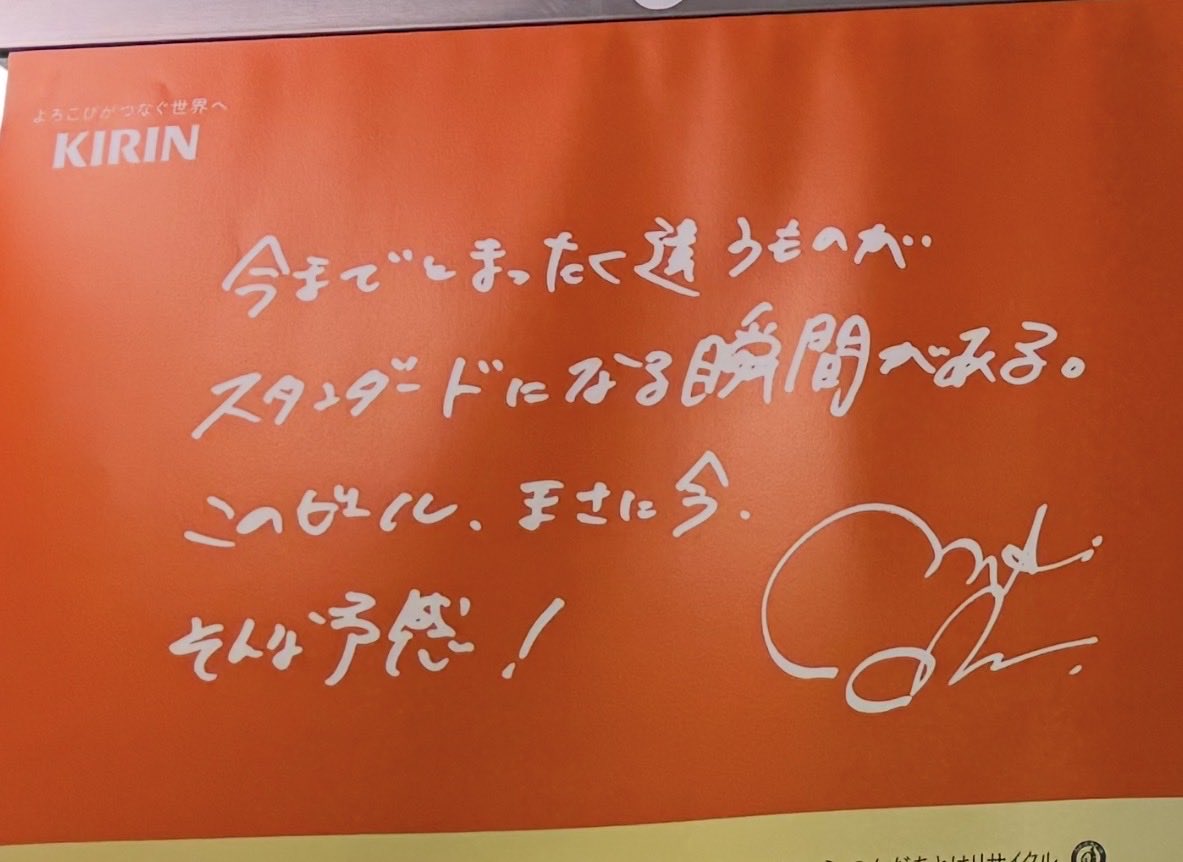 よろこびがつなぐ世界へ
KIRIN
今までとまったく違うものが
スタンダードになる瞬間がある。
このビール、まさに今.
そんな予感!
リサイクル